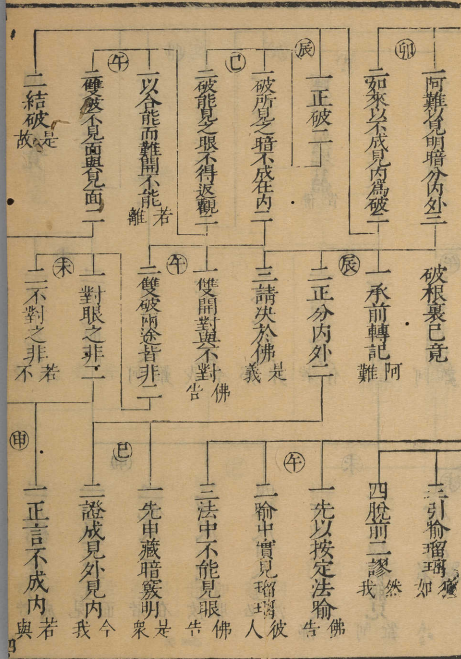 卯
二阿難以見明暗分内外二
二如來以不成見内爲破二
辰
一正破二
一破所見之暗不成在内二
巳
二破能見之眼不得返觀二
一以合能而難開不能
若
離
午
二雙破不見面與見面二
二結破
是
故
破根裏已竟
一承前轉記
阿
難
辰
二正分内外二
三請決於佛
是
義
午
一雙開對與不對
佛
告
二雙破兩途皆非二
一對眼之非二
未
二不對之非
若
不
三引喻瑠璃
如
四脫前二謬
然
我
一先以按定法喻
佛
告
午
二喻中實見瑠璃
彼
人
三法中不能見眼
佛
告
一先申藏暗竅明
是
衆
巳
二證成見外見内
今
我
一正言不成内
若
與
申